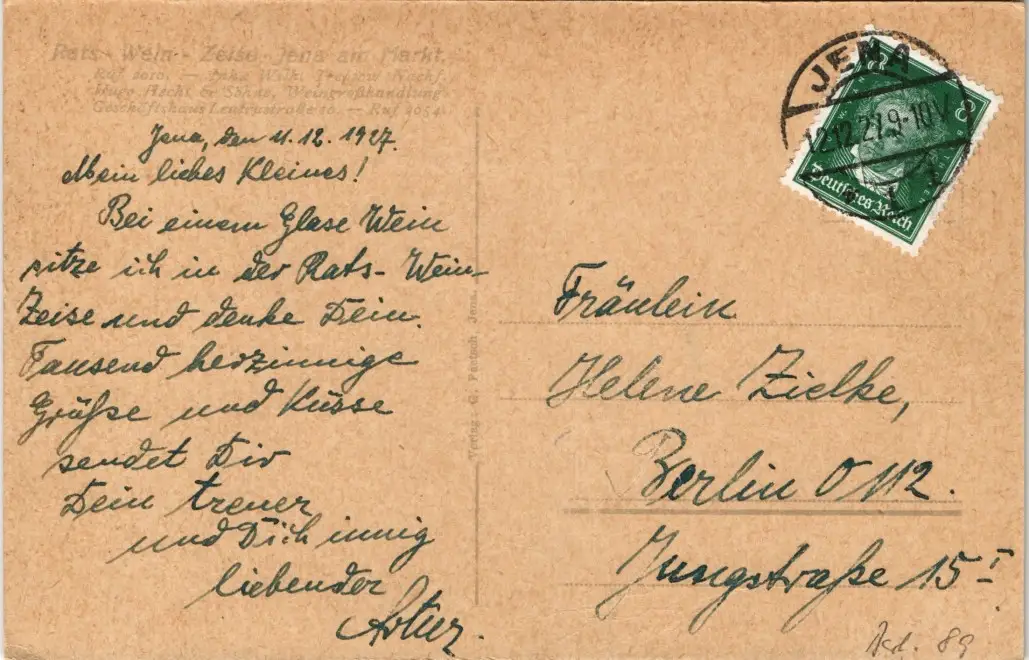 Rats-Wein-Zeise Jena am Markt.
Hugo Hecht & Söhne, Weingroßhandlung
Geschäftshaus Leutrastraße 10. — Ruf 4054
Jena, den 11.12.1927.
Mein liebes Kleines!
Bei einem Glase Wein
sitze ich in der Rats-Wein-
Zeise und denke Dein.
Tausend herzinnige
Grüße und Küsse
sendet Dir
Dein treuer
und Dich innig
liebender
Artur.
Verlag G. Pantsch Jena.
JENA
12.12.27.9-10V
8
Deutsches Reich
Fräulein
Helene Zielke,
Berlin O 112.
Jungstraße 15 I
89